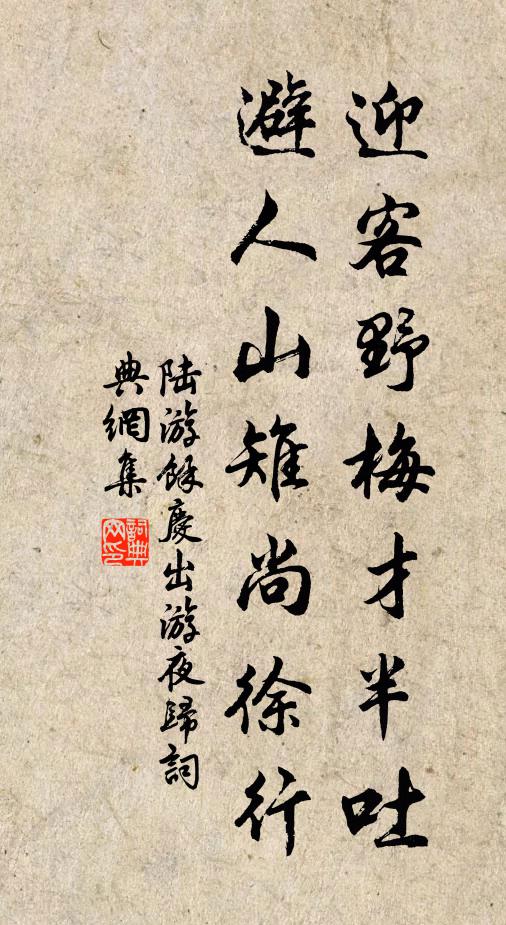 迎客野梅才半吐
避人山雉尚徐行
陆游餘慶出游夜歸詞
典網集
詞典
网印